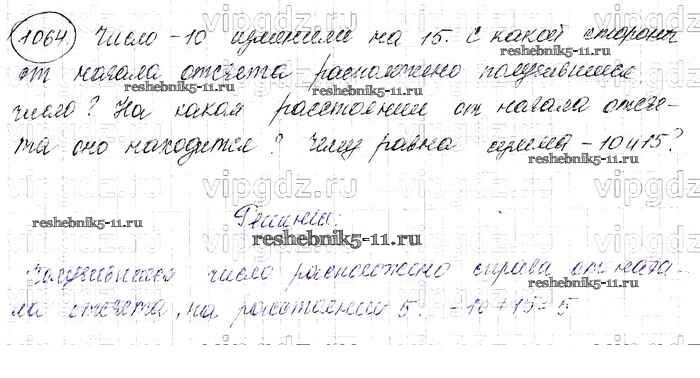 1064. Число -10 изменили на 15. С какой стороны
от начала отсчёта расположено получившееся
число? На каком расстоянии от начала отсчё-
та оно находится? Чему равна сумма -10 и 15?
Решение:
Получившееся число расположено справа от нача-
ла отсчёта, на расстоянии 5. -10+15=5
vipgdz.ru
reshebnik5-11.ru